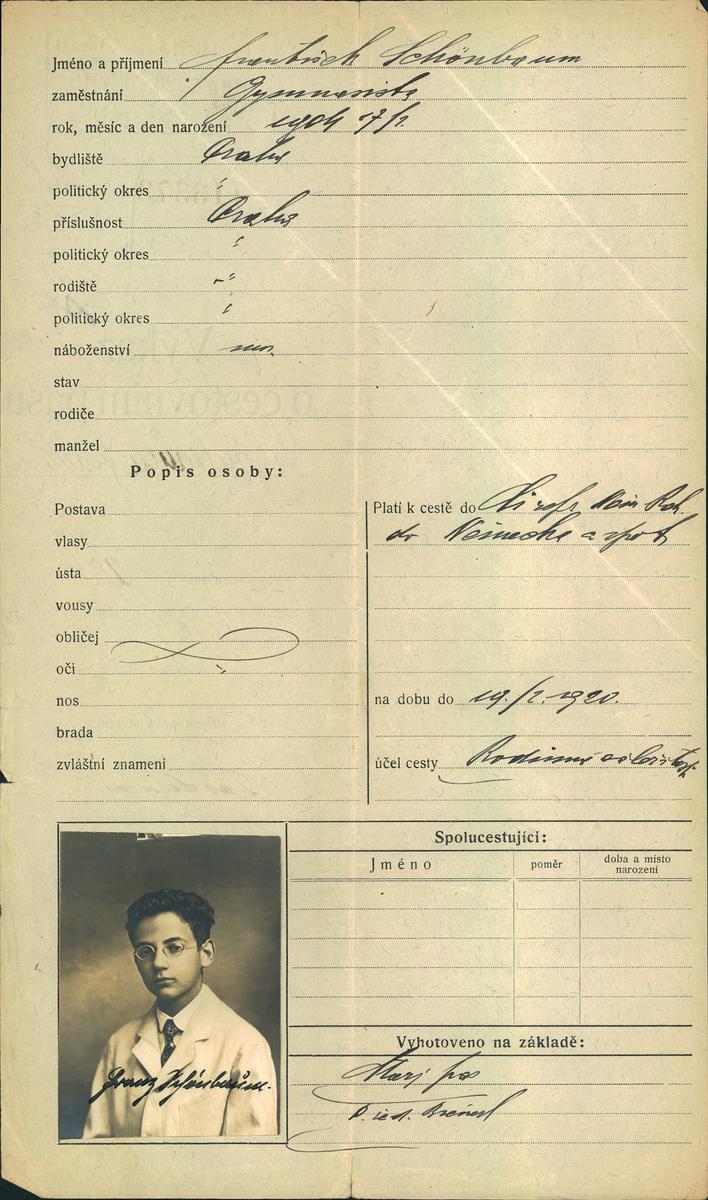 Jméno a příjmení František Schönbaum
zaměstnání Gymnasista
rok, měsíc a den narození 1904 7/1
bydliště Praha
politický okres "
příslušnost Praha
politický okres "
rodiště - "
politický okres "
náboženství
stav
rodiče
manžel
Popis osoby:
Postava
vlasy
ústa
vousy
obličej
oči
nos
brada
zvláštní znamení
Platí k cestě do
do Německa a zpět
na dobu do 19./2. 1920.
účel cesty Rodinné
Spolucestující:
Jméno poměr doba a místo narození
Vyhotoveno na základě:
Starý pas
Franz Schönbaum.